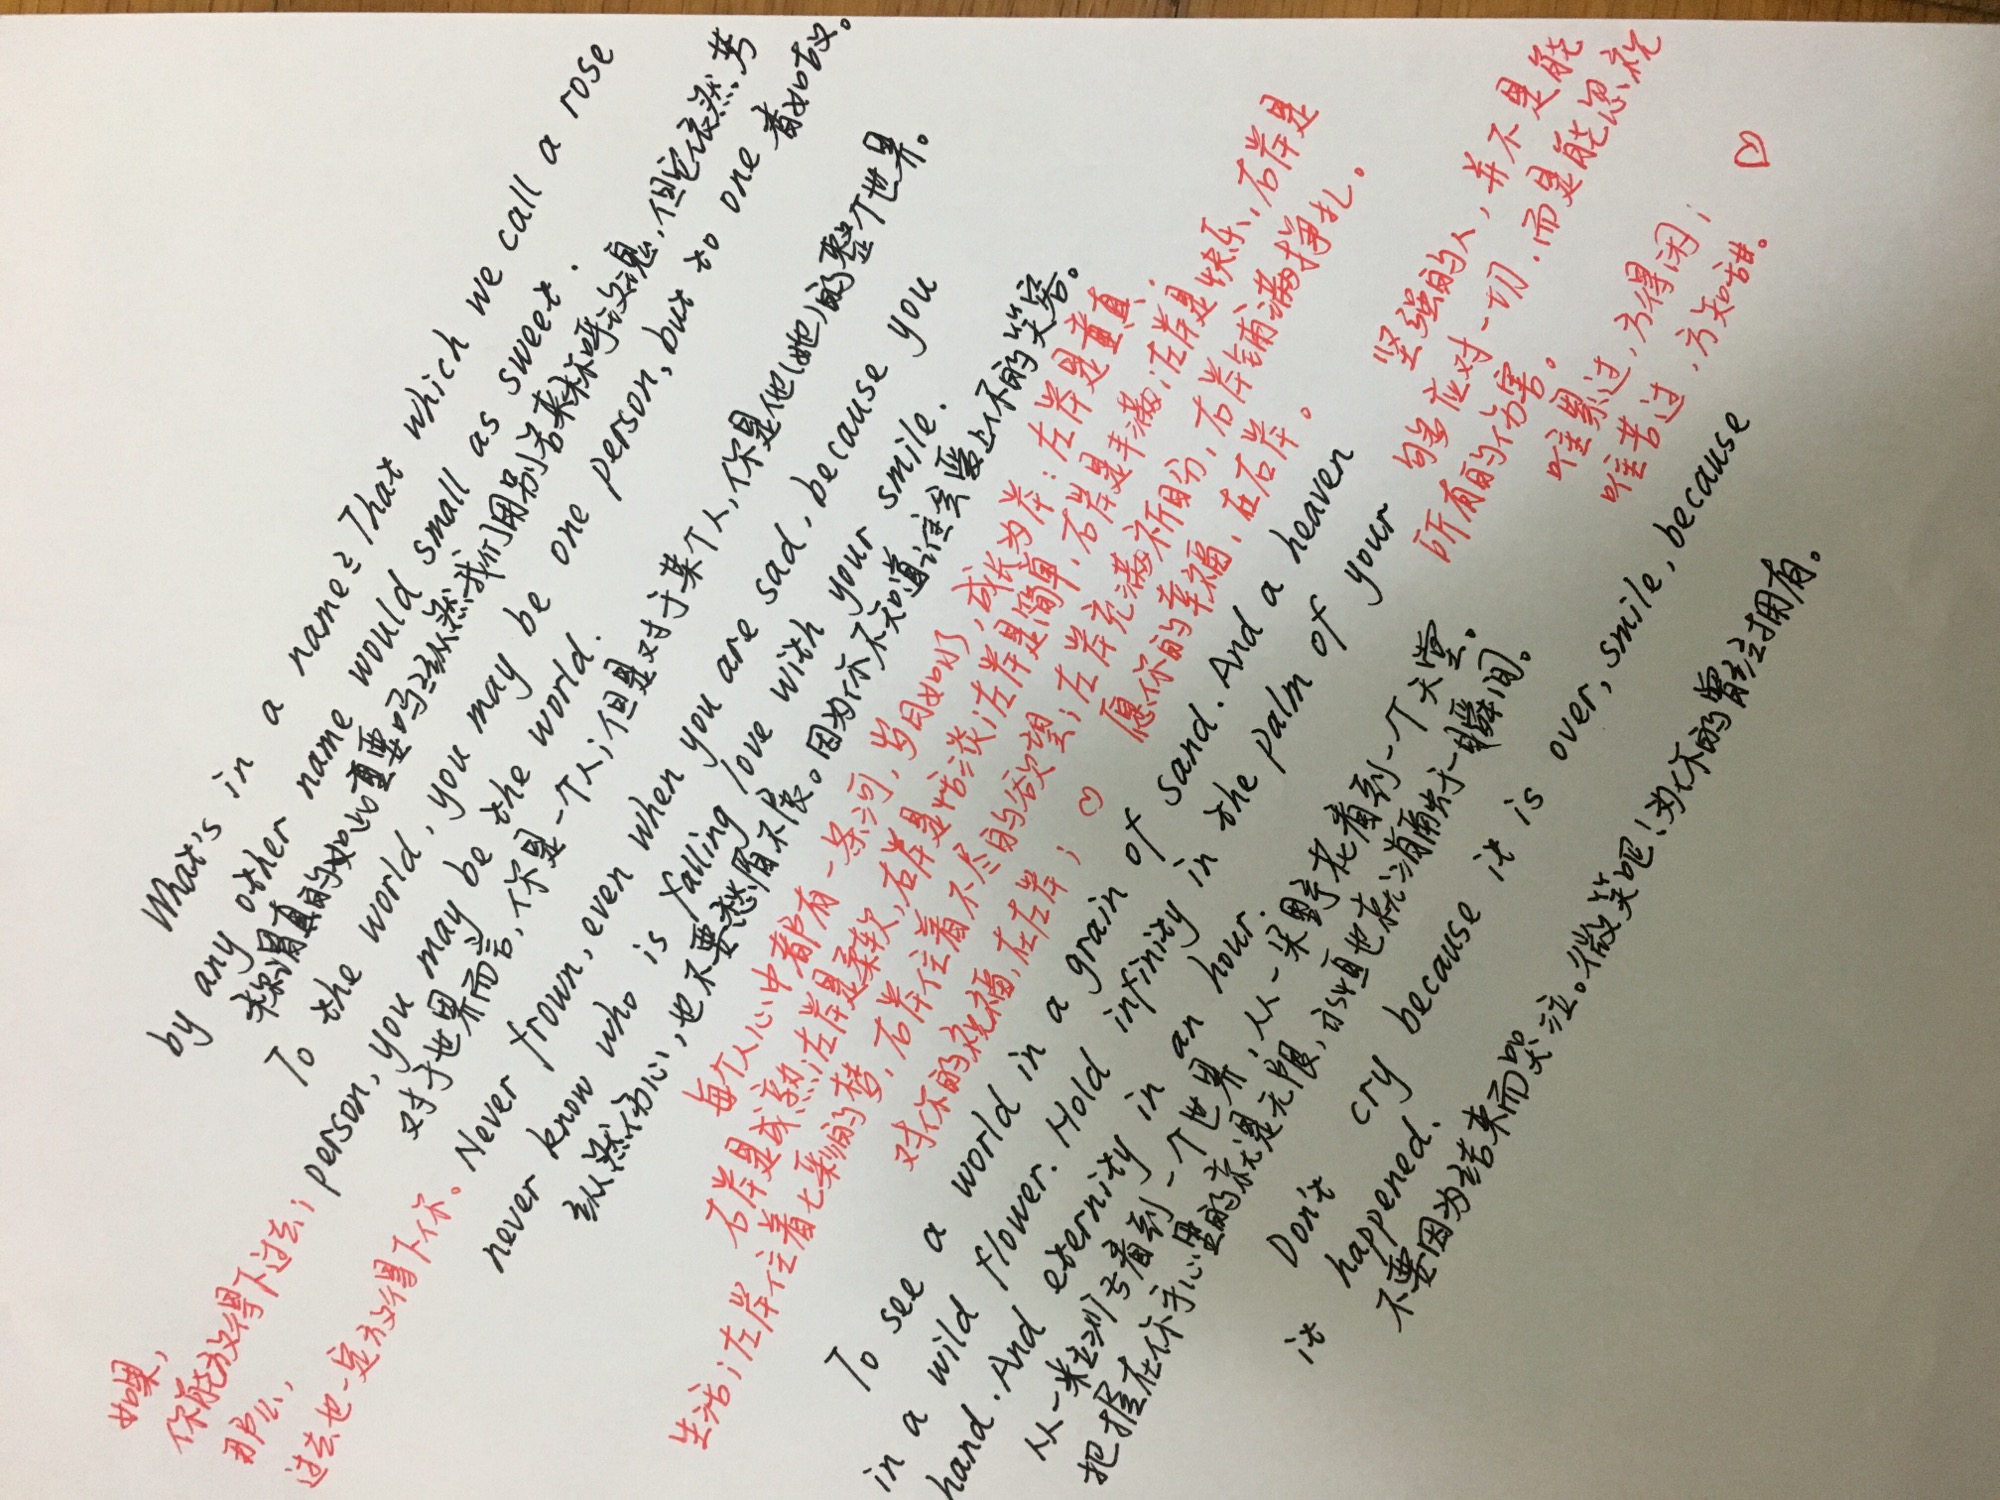 What's in a name? That which we call a rose
by any other name would small as sweet.
称谓真的如此重要吗?纵然我们用别名来称呼玫瑰,但它依然芳
香如故。
To the world, you may be one person, but to one
person, you may be the world.
对于世界而言,你是一个人;但是对于某个人,你是他(她)的整个世界。
Never frown, even when you are sad, because you
never know who is falling love with your smile.
纵然伤心,也不要愁眉不展。因为你不知道谁会爱上你的笑容。
如果,
你能放得下过去;
那么,
过去也一定放得下你。
每个人心中都有一条河,岁月如河,成长为岸:左岸是童真,
右岸是成熟;左岸是柔软,右岸是恬淡;左岸是简单,右岸是丰满;左岸是快乐,右岸是
生活;左岸住着七彩的梦,右岸住着不尽的欲望;左岸充满祈盼,右岸铺满挣扎。
对你的祝福,在左岸;
愿你的幸福,在右岸。
To see a world in a grain of sand. And a heaven
in a wild flower. Hold infinity in the palm of your
hand. And eternity in an hour.
从一粒沙子看到一个世界,从一朵野花看到一个天堂。
把握在你手心里的就是无限,永恒也就消融于一瞬间。
坚强的人,并不是能
够应对一切,而是能忽视
所有的伤害。
唯累过,方得闲;
唯苦过,方知甜。
Don't cry because it is over, smile, because
it happened.
不要因为结束而哭泣。微笑吧!为你的曾经拥有。